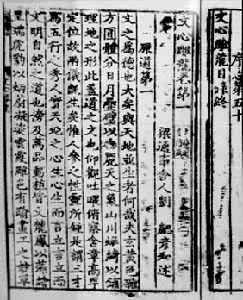 序志第五十
文心雕龍目錄終
文心雕龍卷第一
梁通事舍人劉勰彥和述
原道第一
文之為德也大矣與天地並生者何哉夫玄黃色雜
方圓體分日月疊璧以垂麗天之象山川煥綺以鋪
理地之形此蓋道之文也仰觀吐曜俯察含章高卑
定位故兩儀既生矣惟人參之性靈所鍾是謂三才
為五行之秀人實天地之心生心生而言立言立而
文明自然之道也傍及萬品動植皆文龍鳳以藻繪
呈瑞虎豹以炳蔚凝姿雲霞雕色有踰畫工之妙草